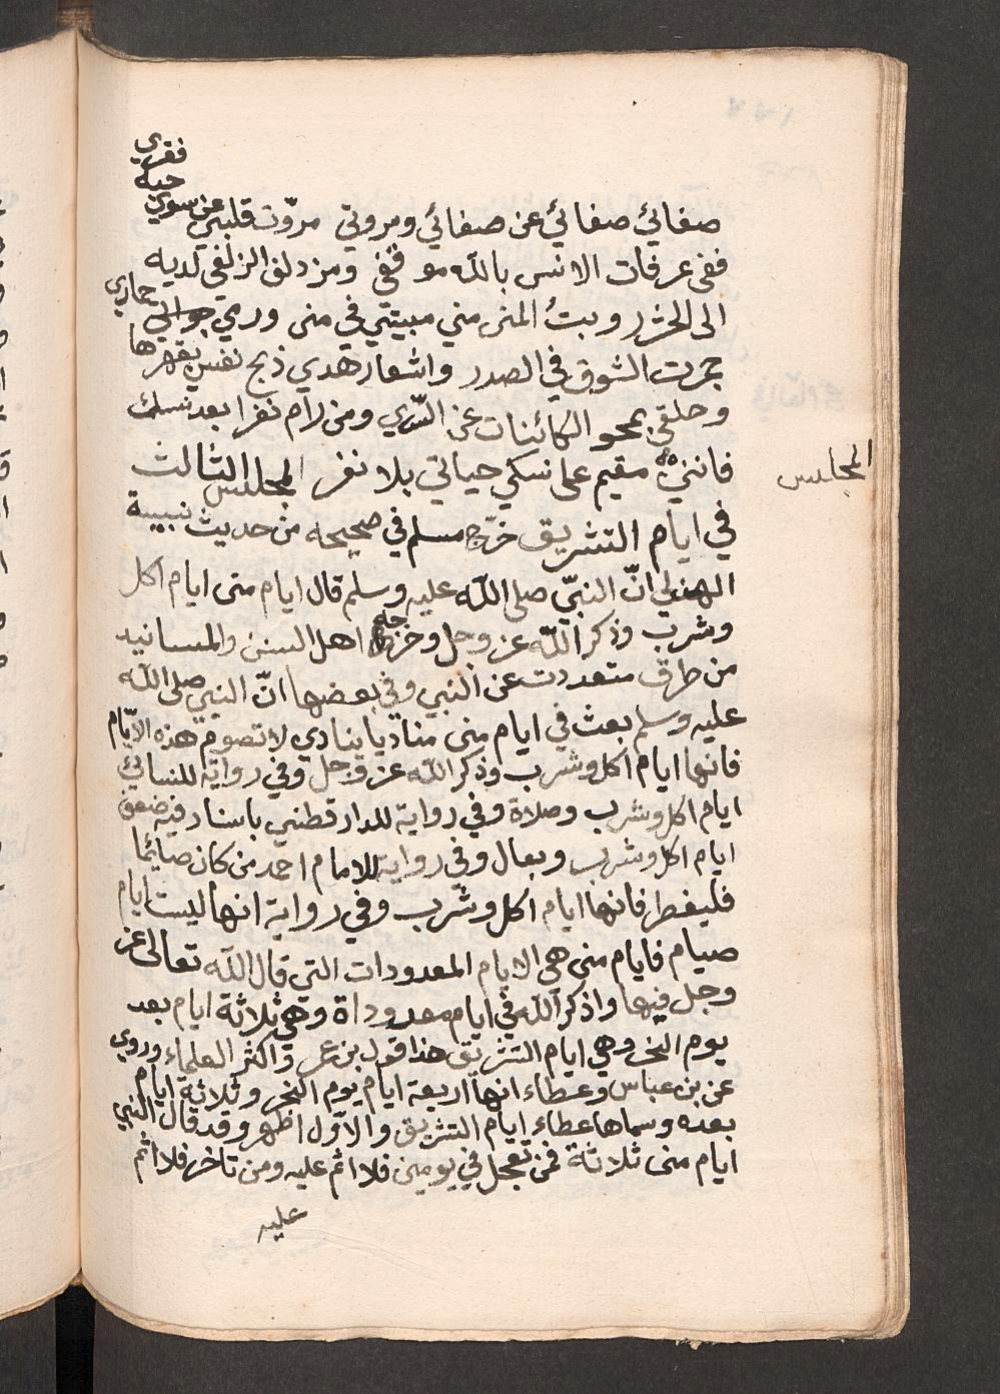 فقري
حبه
صفائي صفائي عن صفائي ومروتي مروّت قلبي عن سوي
ففي عرفات الانس بالله موقفي ومزدلف الزلفى لديه
الى الحشر وبتُ المنى مني مبيتي في منى ورمي جماري
جمرت الشوق في الصدر واشعار هدي ذبح نفس بقهرها
وحلقي بمحو الكائنات عن السّري ومن رام نفرا بعد نسك
فانني مقيم على نسكي حياتي بلا نفر المجلس الثالث
المجلس
في ايام التشريق خرّج مسلم في صحيحه من حديث نبيسة
الهذلي انّ النبيّ صلى الله عليه وسلم قال ايام منى ايام اكل
وشرب وذكر الله عز وجل وخرجه اهل السنن والمسانيد
من طرق متعددت عن النبي وفي بعضها انّ النبي صلى الله
عليه وسلم بعث في ايام منى مناديا ينادي لا تصوم هذه الايّام
فانها ايام اكل وشرب وذكر الله عز وجل وفي رواية للنسائي
ايام اكل وشرب وصلاة وفي رواية للدار قطني باسناد فيه ضعف
ايام اكل وشرب وبعال وفي رواية للامام احمد من كان صائما
فليفطر فانها ايام اكل وشرب وفي رواية انها ليست ايام
صيام فايام منى هي الايام المعدودات التي قال الله تعالى عز
وجل فيها واذكر الله في ايام معدوداة وهي ثلاثة ايام بعد
يوم النحر وهي ايام التشريق هذا قول بن عمر واكثر العلماء وروي
عن بن عباس وعطاء انها اربعة ايام يوم النحر وثلاثة ايام
بعده وسماها عطاء ايام التشريق والاوّل اظهر وقد قال النبي
ايام منى ثلاثة فمن تعجل في يومين فلا اثم عليه ومن تاخر فلا اثم
عليه